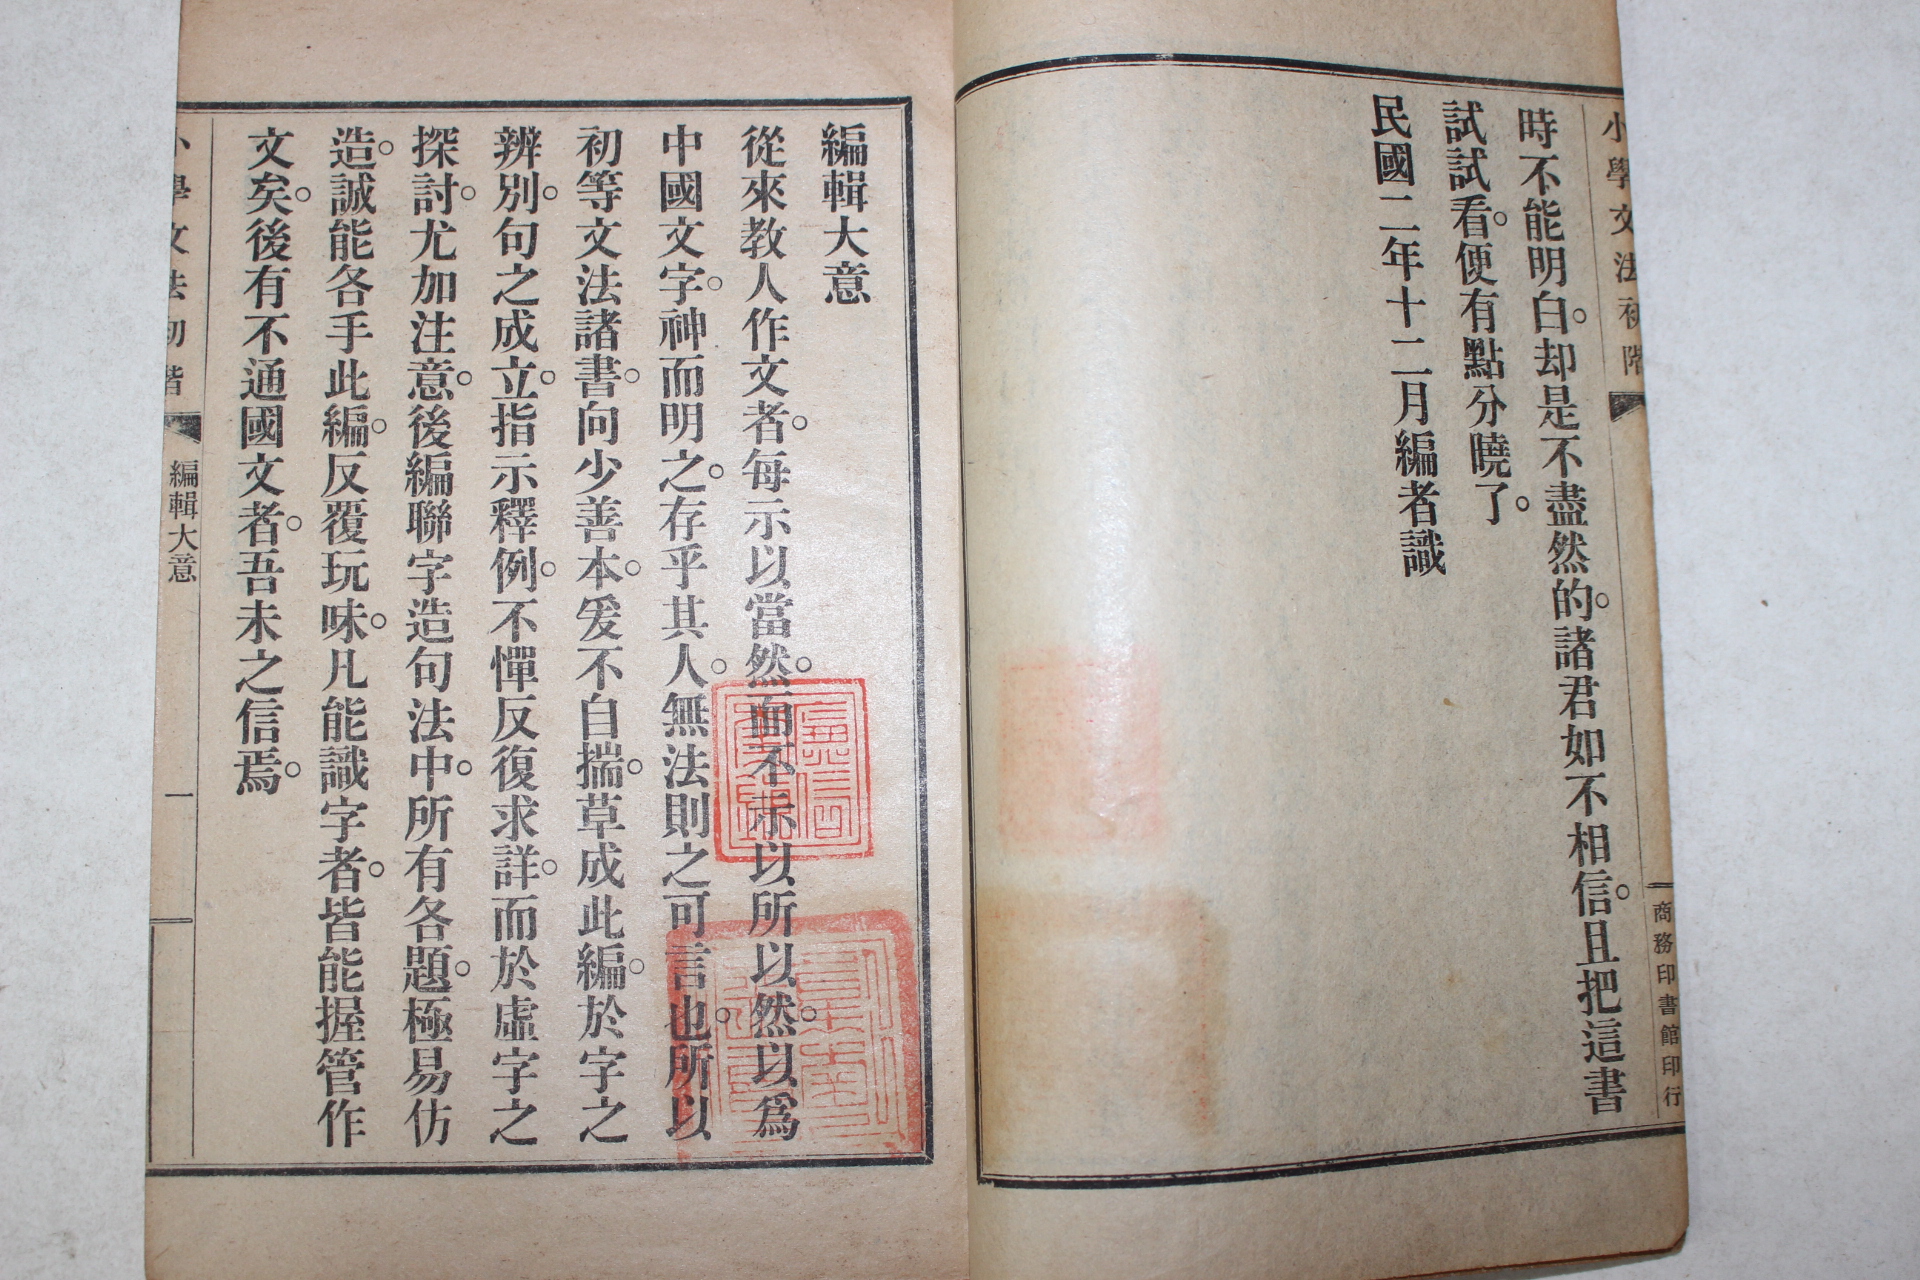 小學文法初階
商務印書館印行
時不能明白。却是不盡然的。諸君如不相信。且把這書
試試看。便有點分曉了。
民國二年十二月編者識
編輯大意
從來教人作文者。每示以當然。而不示以所以然。以爲
中國文字。神而明之。存乎其人。無法則之可言也。所以
初等文法諸書。向少善本。爰不自揣。草成此編。於字之
辨別。句之成立。指示釋例。不憚反復求詳。而於虛字之
探討。尤加注意。後編聯字造句法中。所有各題。極易仿
造。誠能各手此編。反覆玩味。凡能識字者。皆能握管作
文矣。後有不通國文者。吾未之信焉。
小學文法初階
編輯大意
一